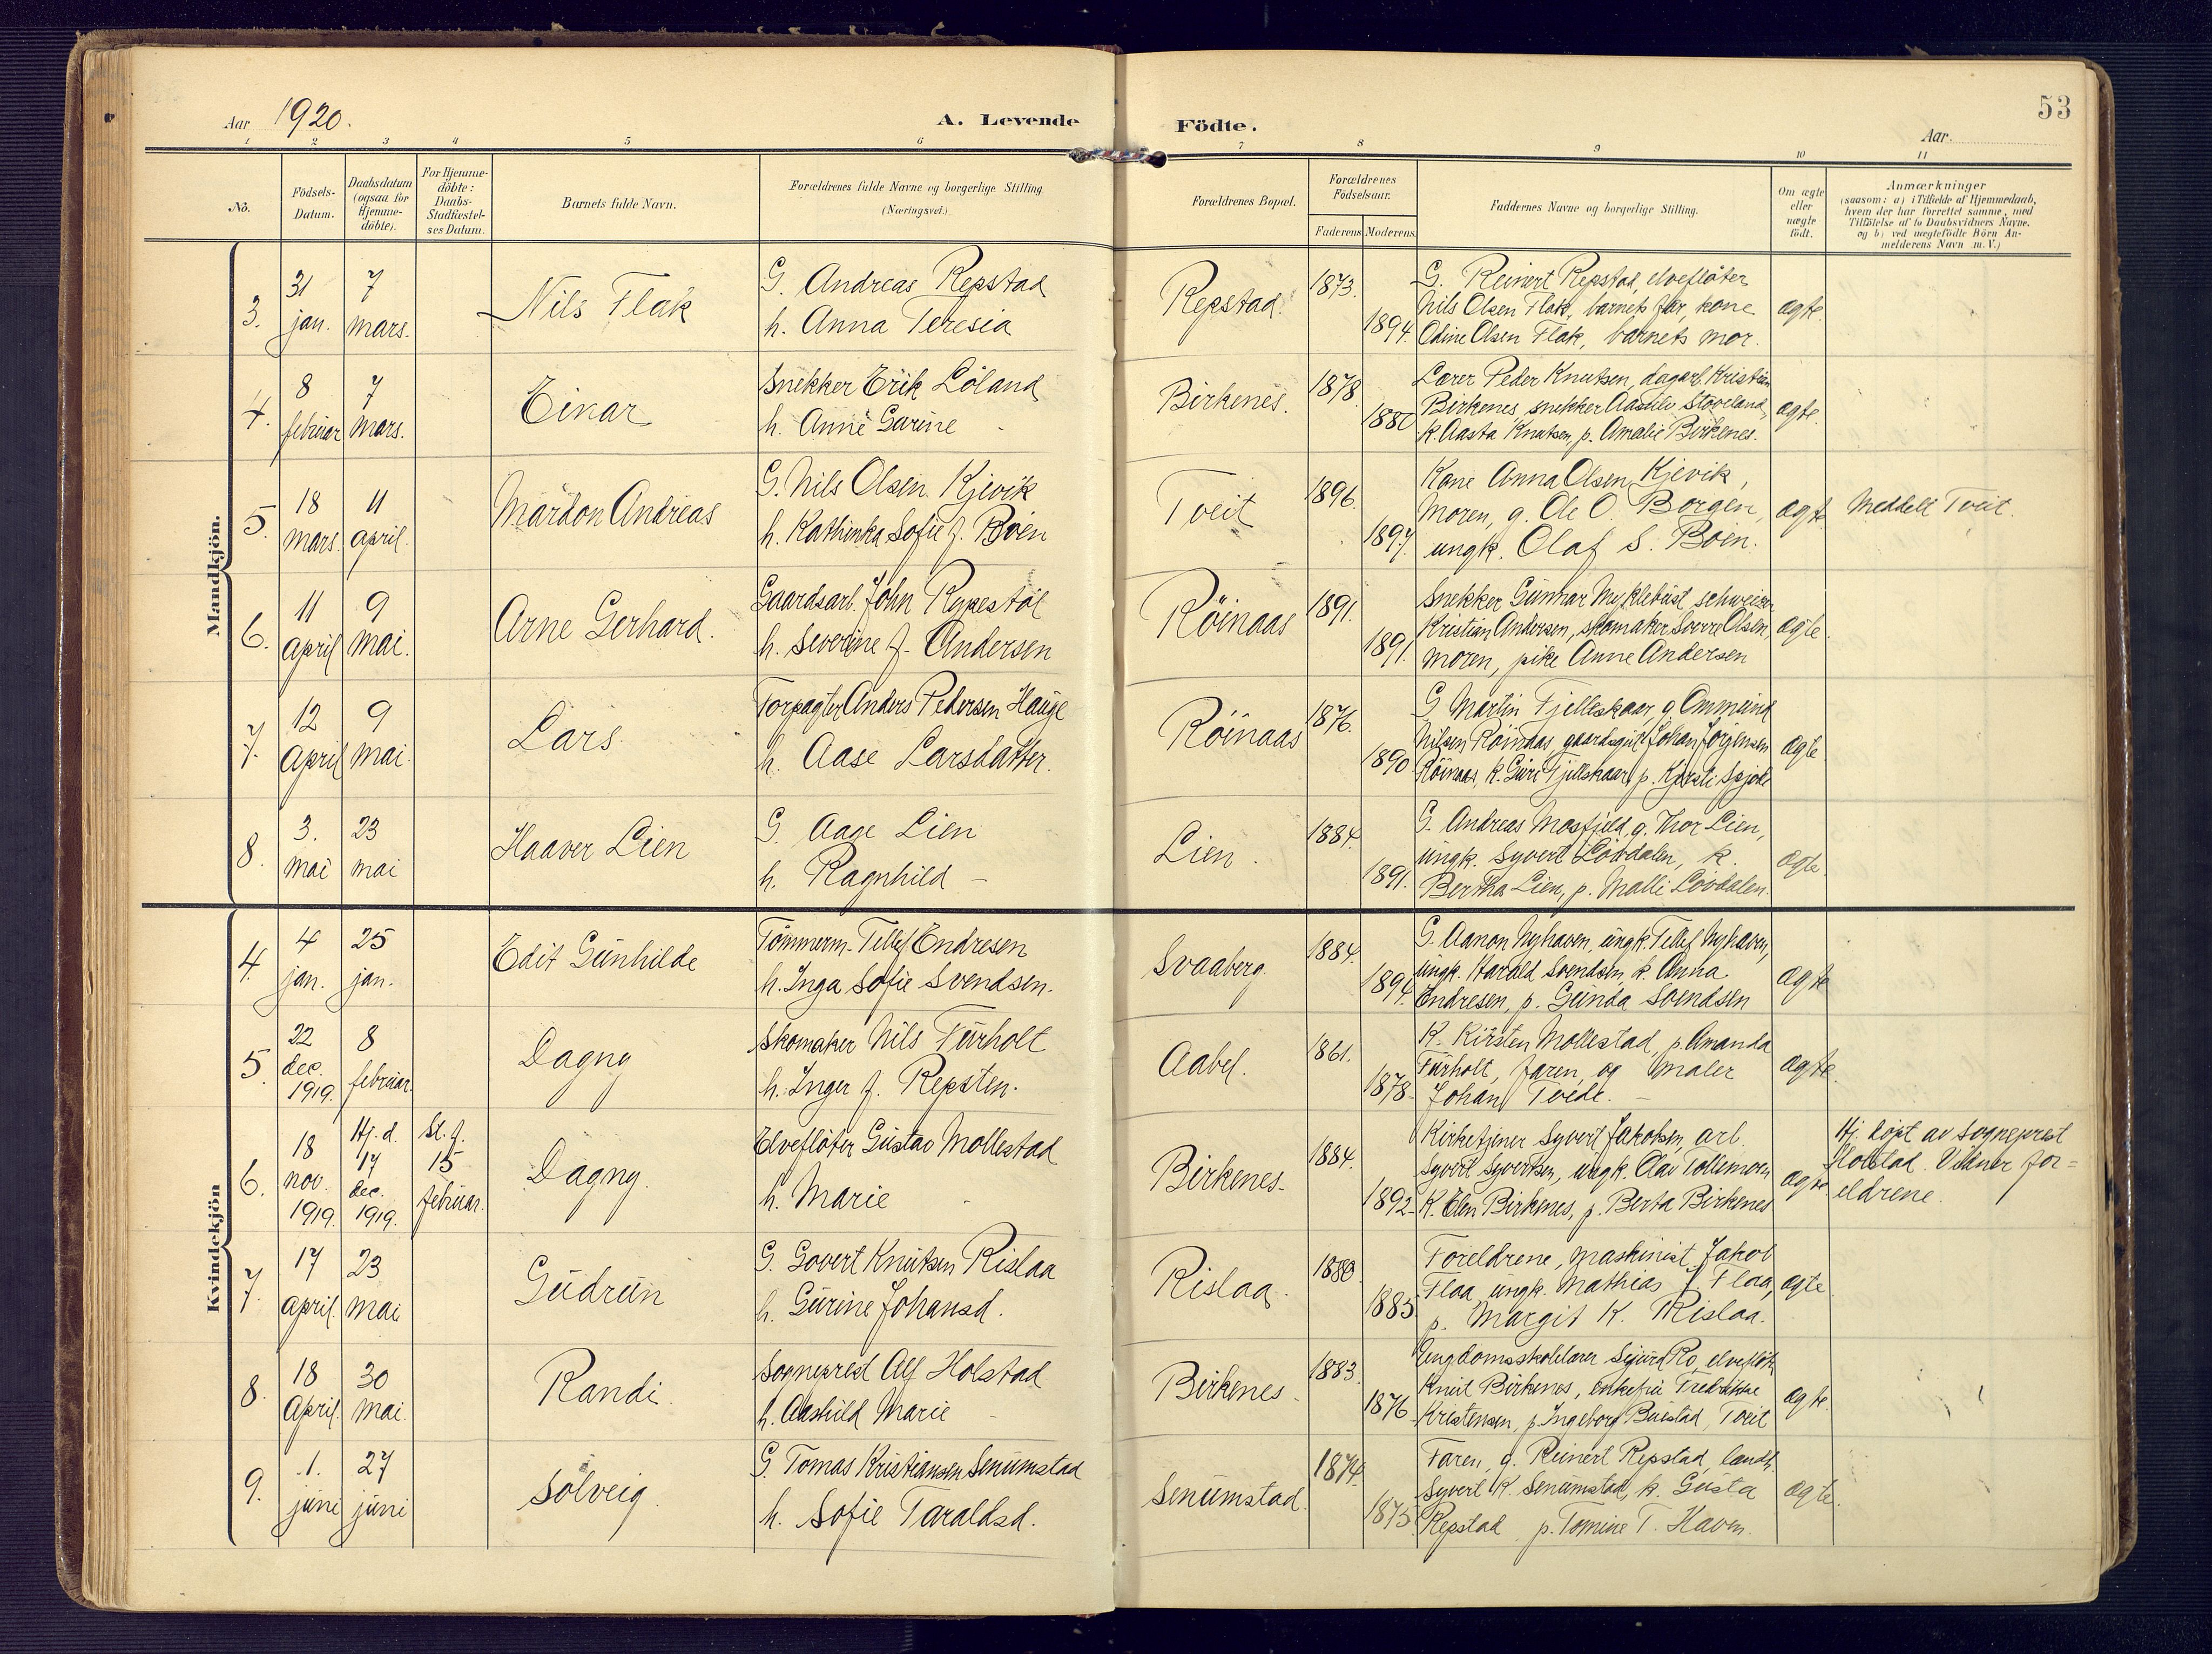 53
Aar 1920.
A. Levende Födte.
Aar
1 2 3 4 5 6 7 8 9 10 11
No.
Födsels-Datum.
Daabsdatum (ogsaa for Hjemme-döbte).
For Hjemme-döbte: Daabs-Stadfæstel-ses Datum.
Barnets fulde Navn.
Forældrenes fulde Navne og borgerlige Stilling
(Næringsvei).
Forældrenes Bopæl.
Forældrenes Födselsaar.
Faderens Moderens
Faddernes Navne og borgerlige Stilling.
Om ægte eller uægte födt.
Anmærkninger
(saasom: a) i Tilfælde af Hjemmedaab,
hvem der har forrettet samme, med
Tilföielse af to Daabsvidners Navne,
og b) ved uægtefödte Börn An-
melderens Navn m. V.)
Mandkjön.
3. 31 jan. 7 mars. Nils Flak
G. Andreas Repstad
h. Anna Teresia
Repstad. 1873. 1894.
G. Reinert Repstad, elvefløter
Nils Olsen Flak, barnets far, kone
Odine Olsen Flak, barnets mor.
ægte.
4. 8 februar 7 mars. Einar
Snekker Erik Löland
h. Anne Gurine -
Birkenes. 1878 1880
Lærer Peder Knutsen, dagarb. Kristian
Birkenes, snekker Stoveland,
k. Aasta Knutsen, p. Amalie Birkenes.
ægte.
5. 18 mars. 11 april. Mardon Andreas
G. Nils Olsen Kjevik
h. Kathinka Sofie f. Boen
Tveit 1896 1897.
Kone Anna Olsen Kjevik,
moren, g. Ole O. Borgen,
ungk. Olaf S. Boen.
ægte
Meddelt Tveit.
6. 11 April 9 Mai. Arne Gerhard.
Gaardsarb. John Rykestöl
h. Severine f. Andersen
Röinaas 1891. 1891.
Snekker Gunnar Myklebust schweizer
Kristian Andersen, skomaker Sverre Olsen,
moren, pike Anne Andersen
ægte.
7. 12 April 9 Mai. Lars
Forpagter Anders Pedersen Hauge
h. Aase Larsdatter.
Röinaas 1876. 1890.
G. Martin Fjelleskaar, g. Ommund
Nilsen Röinaas, gaardsgut Johan Jörgensen
Röinaas, k. Guri Fjellskaar, p. Kjersti
ægte
8. 3. mai 23 mai Haaver Lien
G. Aage Lien
h. Ragnhild -
Lien. 1884. 1891.
G. Andreas Mosfjeld, g. Thor Lien,
ungk. Syvert Lövdalen, k.
Bertha Lien, p. Malli Lövdalen.
ægte.
Kvindekjön
4. 4 jan. 25 jan. Edit Gunhilde
Tömmerm. Tellef Endresen
h. Inga Sofie Svendsen.
Svaaberg. 1884. 1894.
G. Aanon Nyhaven, ungk. Tellef Nyhaven,
ungk. Harald Svendsen, k. Anna
Endresen, p. Gunda Svendsen
ægte
5. 22 dec. 1919. 8 februar. Dagny
Skomaker Nils Furholt
h. Inger f. Repsten.
Aabel. 1861. 1878.
K. Kirsten Mollestad, p. Amanda
Furholt, faren, og maler
Johan Tvede. -
ægte.
6. 18 nov. 1919. Hj. d. 17 dec. 1919. St. f. 15 februar. Dagny.
Elvefløter Gustav Mollestad
h. Marie
Birkenes. 1884. 1892.
Kirketjener Syvert Jakobsen, arb.
Syvert Syvertsen, ungk. Olav Tollemoen
K. Elen Birkenes, p. Berta Birkenes
ægte
Hj. döpt av sogneprest
Holstad. Vidner for=
eldrene.
7. 17 April. 23 Mai Gudrun
G. Govert Knutsen Rislaa
h. Gurine Johansd.
Rislaa. 1880 1885
Foreldrene, maskinist Jakob
Flaa, ungk. Mathias J. Flaa,
p. Margit K. Rislaa.
ægte
8. 18 April. 30 Mai. Randi.
Sogneprest Alf Holstad
h. Aashild Marie -
Birkenes. 1883. 1876
Ungdomsskolelærer Sigurd Ro, elvefløt.
Knut Birkenes, enkefru Fredrikke
Kristensen, p. Ingeborg Buestad, Tveit
ægte.
9. 1. juni 27 juni Solveig.
G. Tomas Kristiansen Senumstad
h. Sofie Taraldsd.
Senumstad. 1874. 1875
Faren, g. Reinert Repstad, landh.
Syvert K. Senumstad, k. Gusta
Repstad, p. Tomine T. Haven.
ægte.